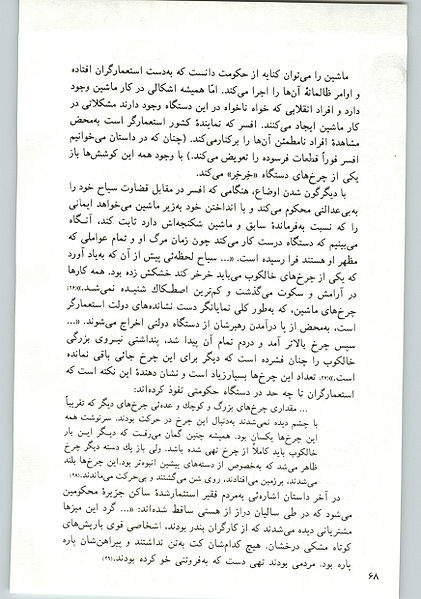 ماشین را می‌توان کنایه از حکومت دانست که به‌دست استعمارگران افتاده
و اوامر ظالمانهٔ آن‌ها را اجرا می‌کند. امّا همیشه اشکالی در کار ماشین وجود
دارد و افراد انقلابی که خواه ناخواه در این دستگاه وجود دارند مشکلاتی در
کار ماشین ایجاد می‌کنند. افسر که نمایندهٔ کشور استعمارگر است به‌محض
مشاهدهٔ افراد نامطمئن آن‌ها را برکنارمی‌کند. (چنان که در داستان می‌خوانیم
افسر فوراً قطعات فرسوده را تعویض می‌کند.) با وجود همه این کوشش‌ها باز
یکی از چرخ‌های دستگاه «خِرخِر» می‌کند.
با دیگرگون شدن اوضاع، هنگامی که افسر در مقابل قضاوت سیاح خود را
به‌بی‌عدالتی محکوم می‌کند و با انداختن خود به‌زیر ماشین می‌خواهد ایمانی
را که نسبت به‌فرماندهٔ سابق و ماشین شکنجه‌اش دارد ثابت کند، آنگاه
می‌بینیم که دستگاه درست کار می‌کند چون زمان مرگ او و تمام عواملی که
مظهر او هستند فرا رسیده است. «... سیاح لحظه‌ئی پیش از آن که به‌یاد آورد
که یکی از چرخ‌های خالکوب می‌باید خرخر کند خشکش زده بود. همه کارها
در آرامش و سکوت می‌گذشت و کم‌ترین اصطکاك شنیـده نمی‌شـد.»(۲۶)
چرخ‌های ماشین، که به‌طور کلی نمایانگر دست نشانده‌های دولت استعمارگر
است، به‌محض از پا درآمدن رهبرشان از دستگاه دولتی اخراج می‌شوند. «...
سپس چرخ بالاتر آمد و دردم تمام آن پیدا شد، پنداشتی نیـروی بزرگی
خالکوب را چنان فشرده است که دیگر برای این چرخ جائی باقی نمانده
است.»(۲۷) تعداد این چرخ‌ها بسیارزیاد است و نشان دهندهٔ این نکته است که
استعمارگران تا چه حد در دستگاه حکومتی نفوذ کرده‌اند:
... مقداری چرخ‌های بزرگ و کوچك و عده‌ئی چرخ‌های دیگر که تقریباً
با چشم دیده نمی‌شدند به‌دنبال این چرخ در حرکت بودند. سرنوشت همه
این چرخ‌ها یکسان بود. همیشه چنین گمان می‌رفـت که دیگـر ایـن بار
خالکوب باید کاملاً از چرخ تهی شده باشد. ولی باز یك دسته دیگر چرخ
ظاهر می‌شد که به‌خصوص از دسته‌های پیشین انبوه‌تر بود.این چرخ‌ها بلند
می‌شدند، برزمین می‌افتادند، روی شن می‌گشتند و بی‌حرکت می‌ماندند.(۲۸)
در آخر داستان اشاره‌ئی به‌مردم فقیر استثمارشدهٔ ساکن جزیرهٔ محکومین
می‌شود که در طی سالیان دراز از هستی ساقط شده‌اند: «... گرد این میزها
مشتریانی دیده می‌شدند که از کارگران بندر بودند، اشخاصی قوی باریش‌های
کوتاه مشکی درخشان. هیچ کدامشان کت به‌تن نداشتند و پیراهن‌شان پاره
پاره بود. مردمی بودند تهی دست که به‌فروتنی خو کرده بودند.(۲۹)
۶۸